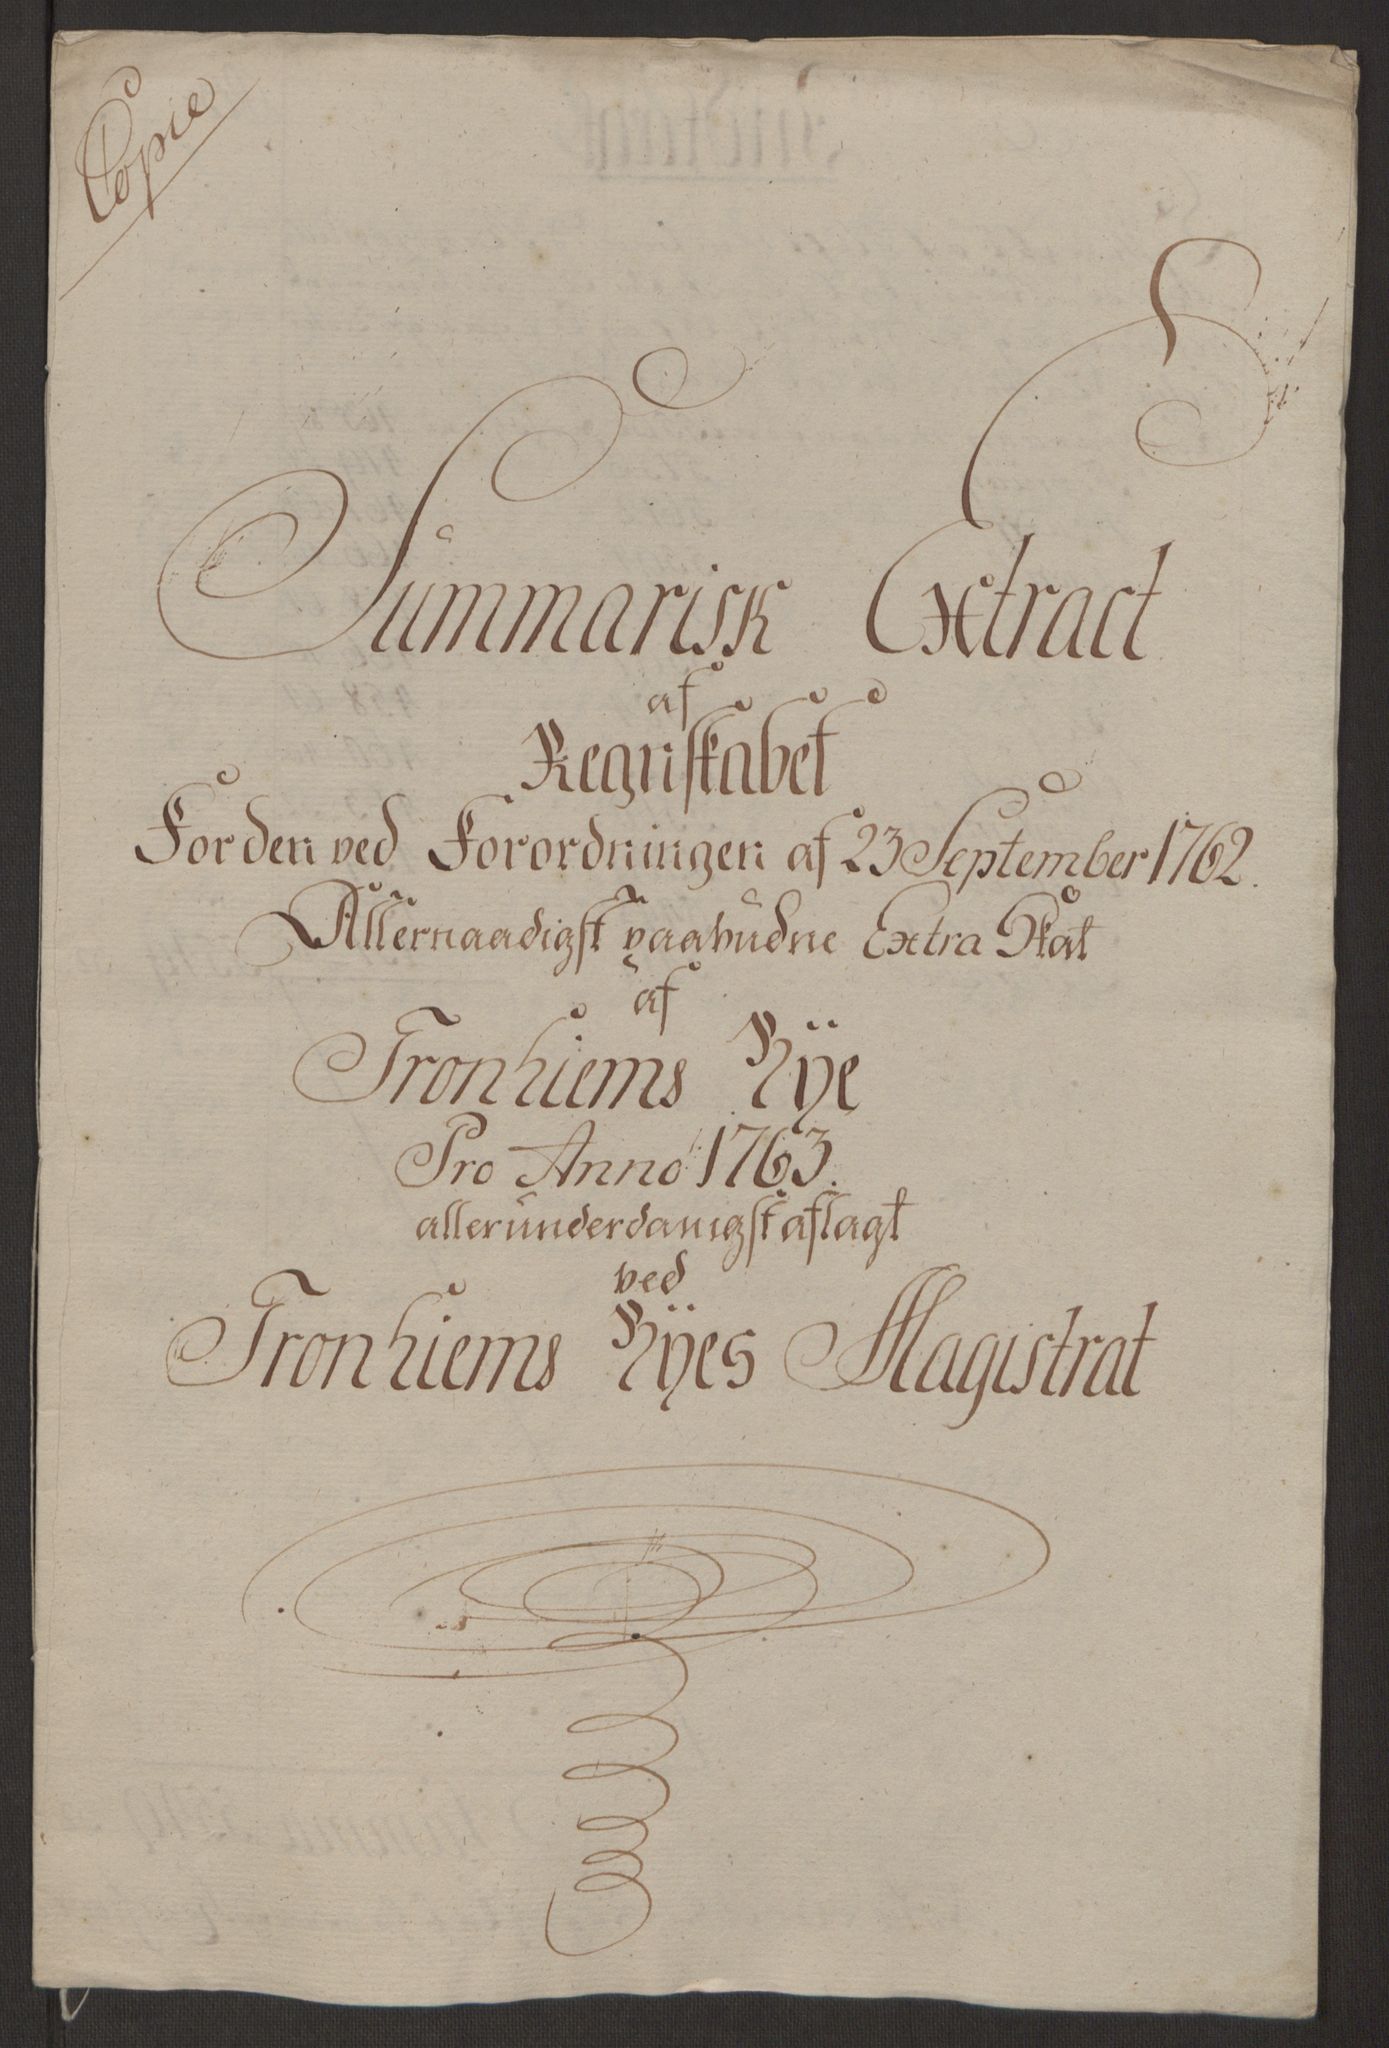 Copie
Summarisk Extract
af
Regnskabet
For den ved Forordningen af 23 September 1762.
Allernaadigst paabudne Extra Skat
af
Tronhiems Bÿe
Pro Anno 1763.
allerunderdanigst aflagt
ved
Tronhiems Bÿes Magistrat